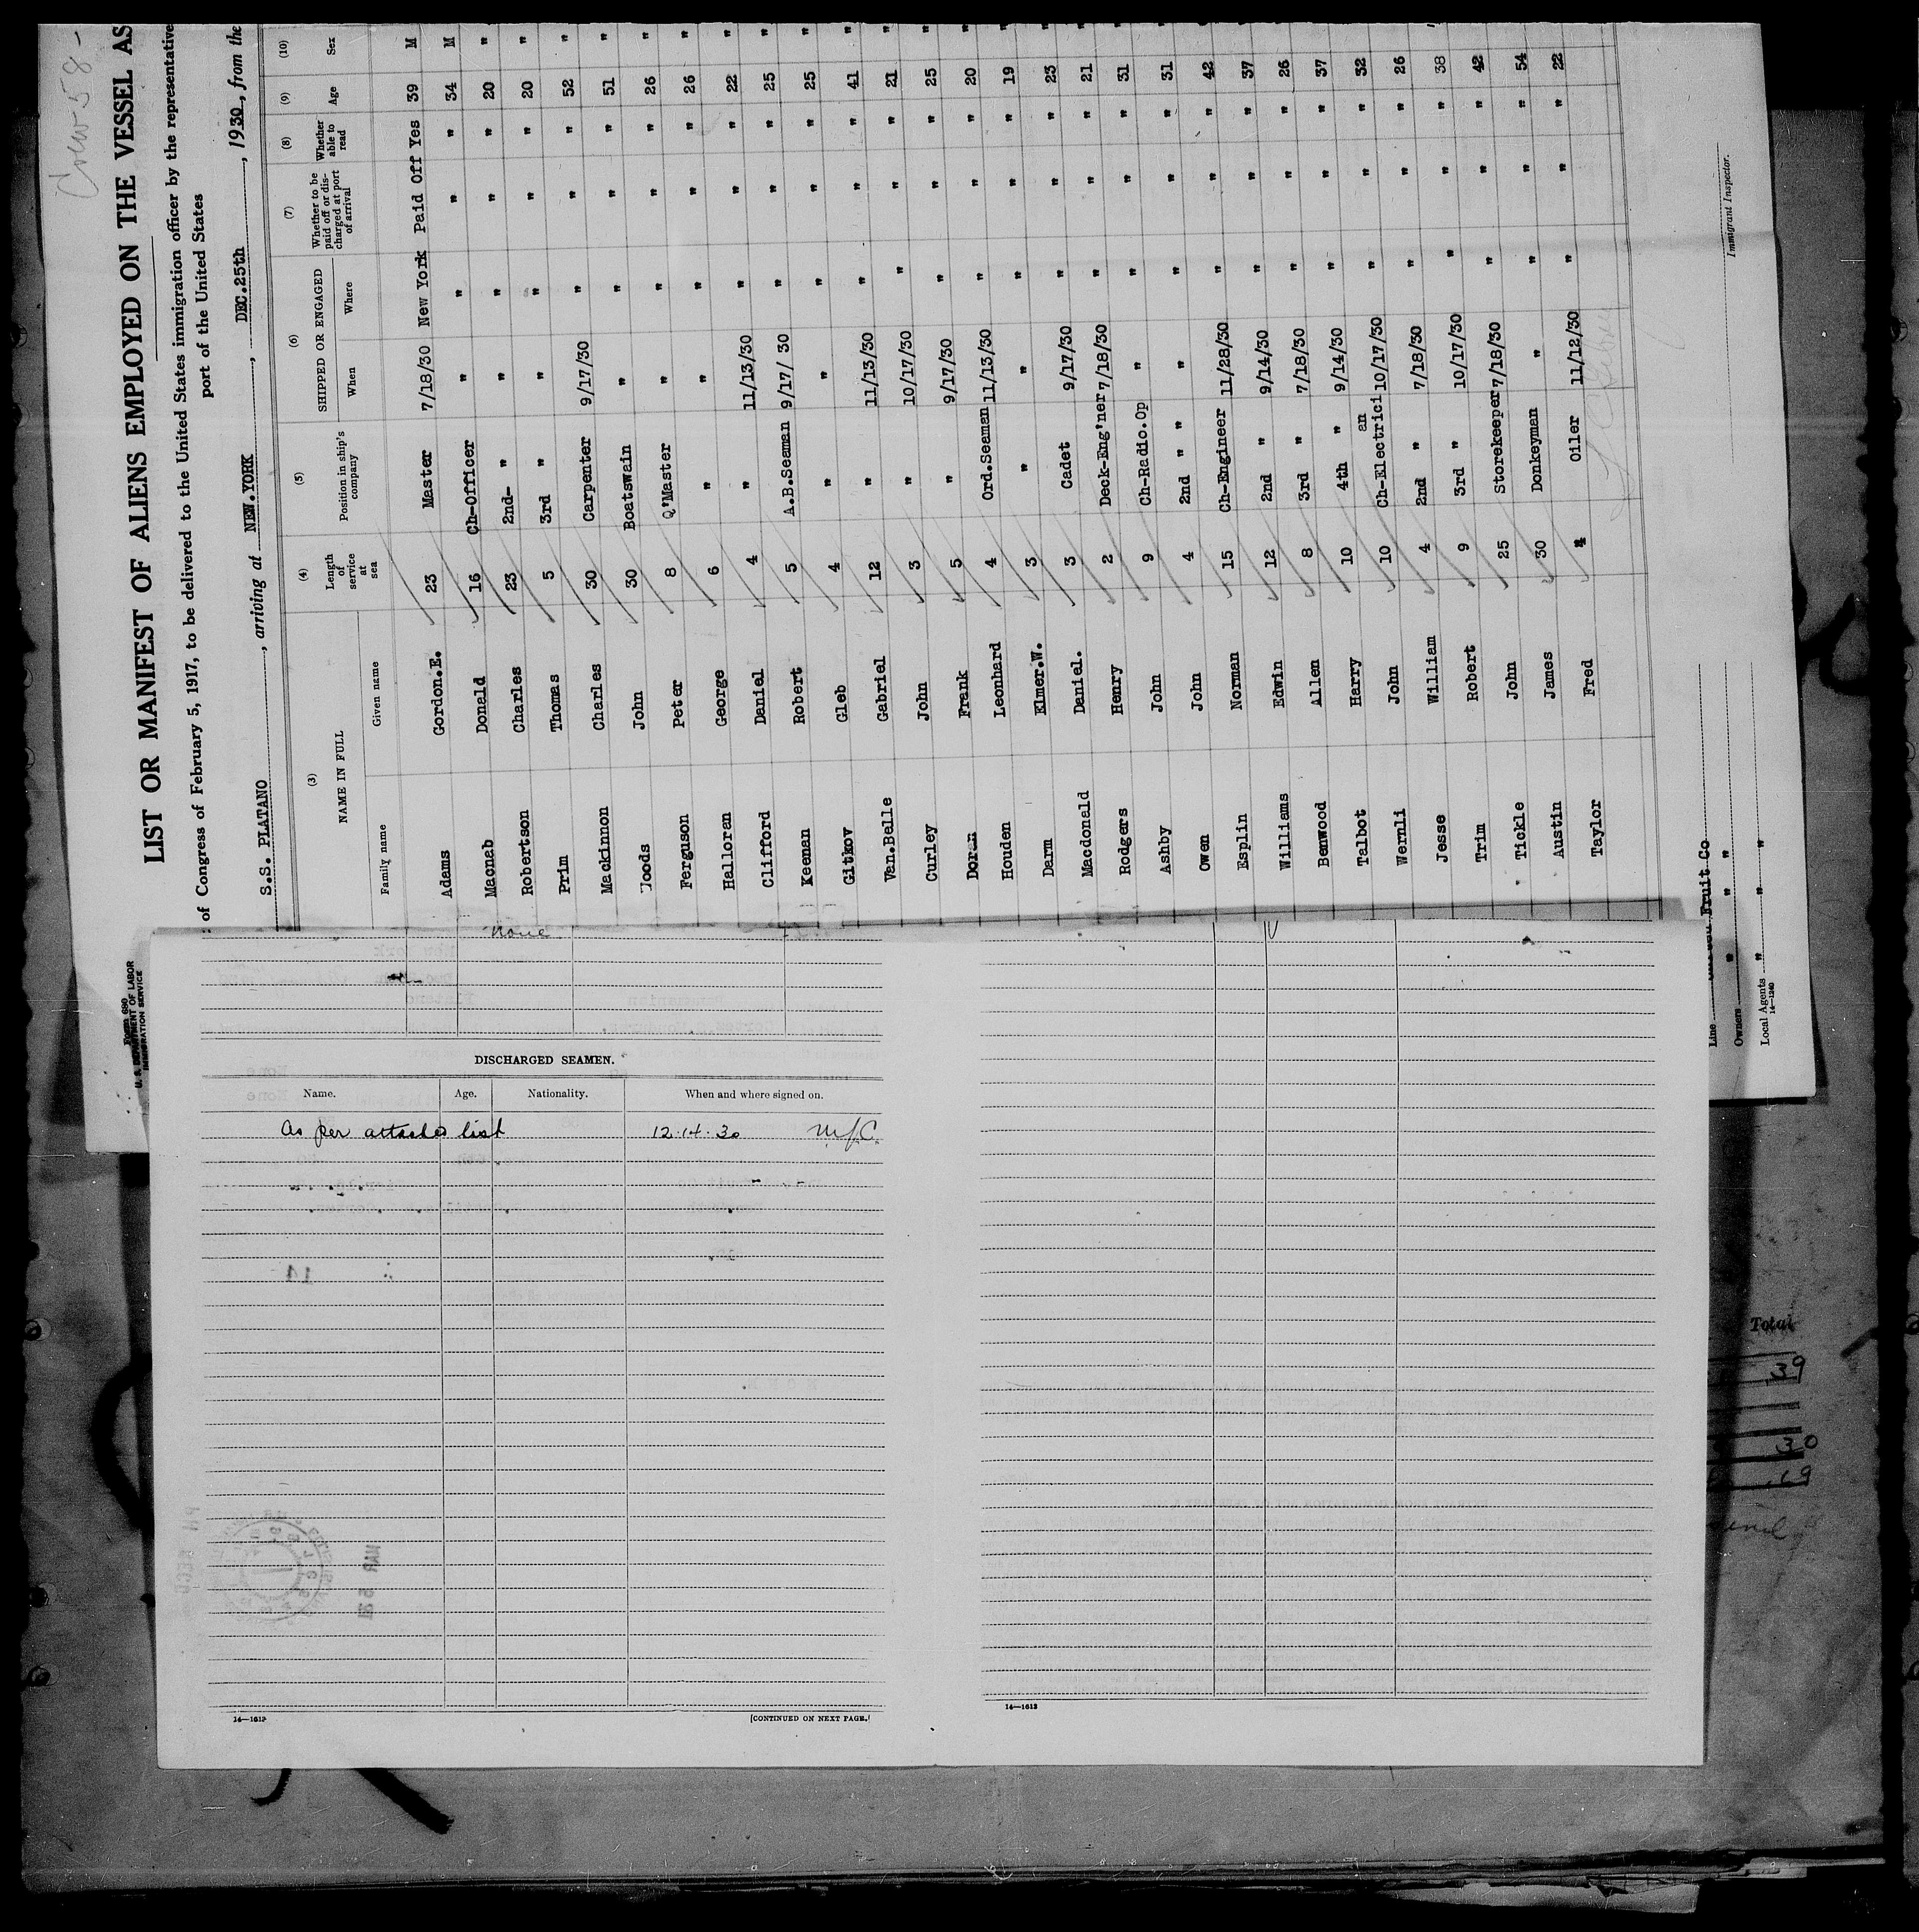 Crew 58-
LIST OR MANIFEST OF ALIENS EMPLOYED ON THE VESSEL AS
of Congress of February 5, 1917, to be delivered to the United States immigration officer by the representative
port of the United States
S.S. PLATANO, arriving at NEW.YORK, DEC.25th, 1930, from the
(3) (4) (5) (6) (7) (8) (9) (10)
NAME IN FULL Length of service at sea Position in ship's company SHIPPED OR ENGAGED Whether to be paid off or discharged at port of arrival Whether able to read Age Sex
Family name Given name When Where
Adams Gordon.E. 23 Master 7/18/30 New York Paid Off Yes 39 M
Macnab Donald 16 Ch-Officer " " " " 34 M
Robertson Charles 23 2nd- " " " " " 20 "
Prim Thomas 5 3rd " " " " " 20 "
Mackinnon Charles 30 Carpenter 9/17/30 " " " 52 "
Woods John 30 Boatswain " " " " 51 "
Ferguson Peter 8 Q'Master " " " " 26 "
Halloran George 6 " " " " " 26 "
Clifford Daniel 4 " 11/13/30 " " " 22 "
Keenan Robert 5 A.B.Seaman 9/17/ 30 " " " 25 "
Gitkov Gleb 4 " " " " " 25 "
Van.Belle Gabriel 12 " 11/13/30 " " " 41 "
Curley John 3 " 10/17/30 " " " 21 "
Doran Frank 5 " 9/17/30 " " " 25 "
Houden Leonhard 4 Ord.Seaman 11/13/30 " " " 20 "
Darm Elmer.W. 3 " " " " " 19 "
Macdonald Daniel. 3 Cadet 9/17/30 " " " 23 "
Rodgers Henry 2 Deck-Eng'ner 7/18/30 " " " 21 "
Ashby John 9 Ch-Radio.Op " " " " 31 "
Owen John 4 2nd " " " " " " 31 "
Esplin Norman 15 Ch-Engineer 11/28/30 " " " 42 "
Williams Edwin 12 2nd " 9/14/30 " " " 37 "
Benwood Allen 8 3rd " 7/18/30 " " " 26 "
Talbot Harry 10 4th " 9/14/30 " " " 37 "
Wernli John 10 Ch-Electrician 10/17/30 " " " 32 "
Jesse William 4 2nd " 7/18/30 " " " 26 "
Trim Robert 9 3rd " 10/17/30 " " " 38 "
Tickle John 25 Storekeeper 7/18/30 " " " 42 "
Austin James 30 Donkeyman " " " " 54 "
Taylor Fred 4 Oiler 11/12/30 " " " 22 "
Immigrant Inspector.
Form 680
U. S. DEPARTMENT OF LABOR
IMMIGRATION SERVICE
Line Fruit Co
Owners " " "
Local Agents " " "
14—1240
None
DISCHARGED SEAMEN.
Name. Age. Nationality. When and where signed on.
As per attached list 12.14.30 M.J.C.
14—1612 [CONTINUED ON NEXT PAGE.]
14—1612
Total
39
30
69